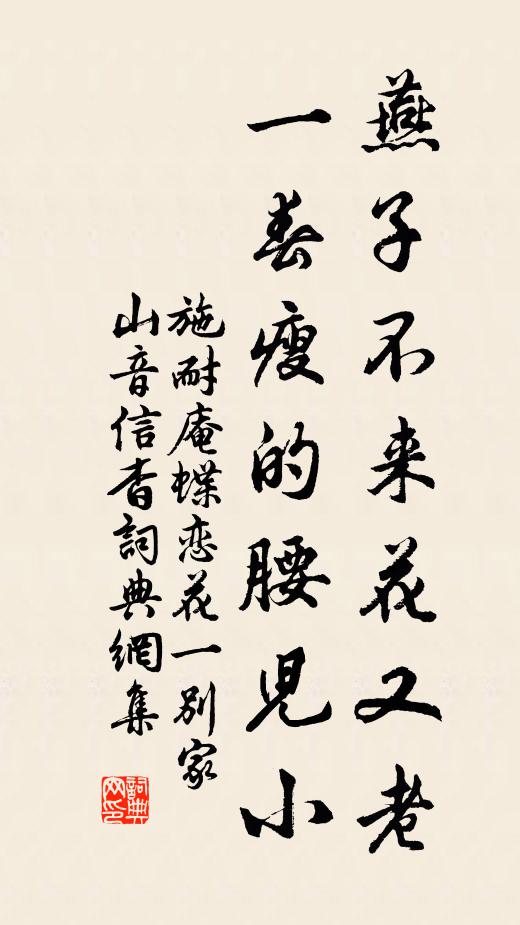 燕子不来花又老
一春瘦的腰児小
施耐庵蝶恋花一别家
山音信杳詞典網集
詞典網印